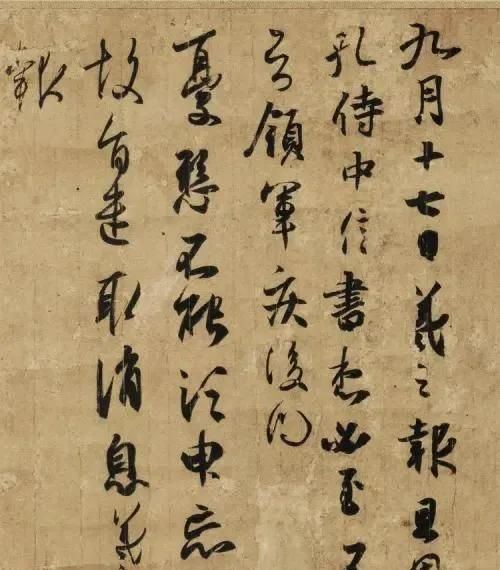 九月十七日羲之報且因
孔侍中信書想必至不
知領軍疾後問
憂懸不能須臾忘
故旨遣取消息羲
報